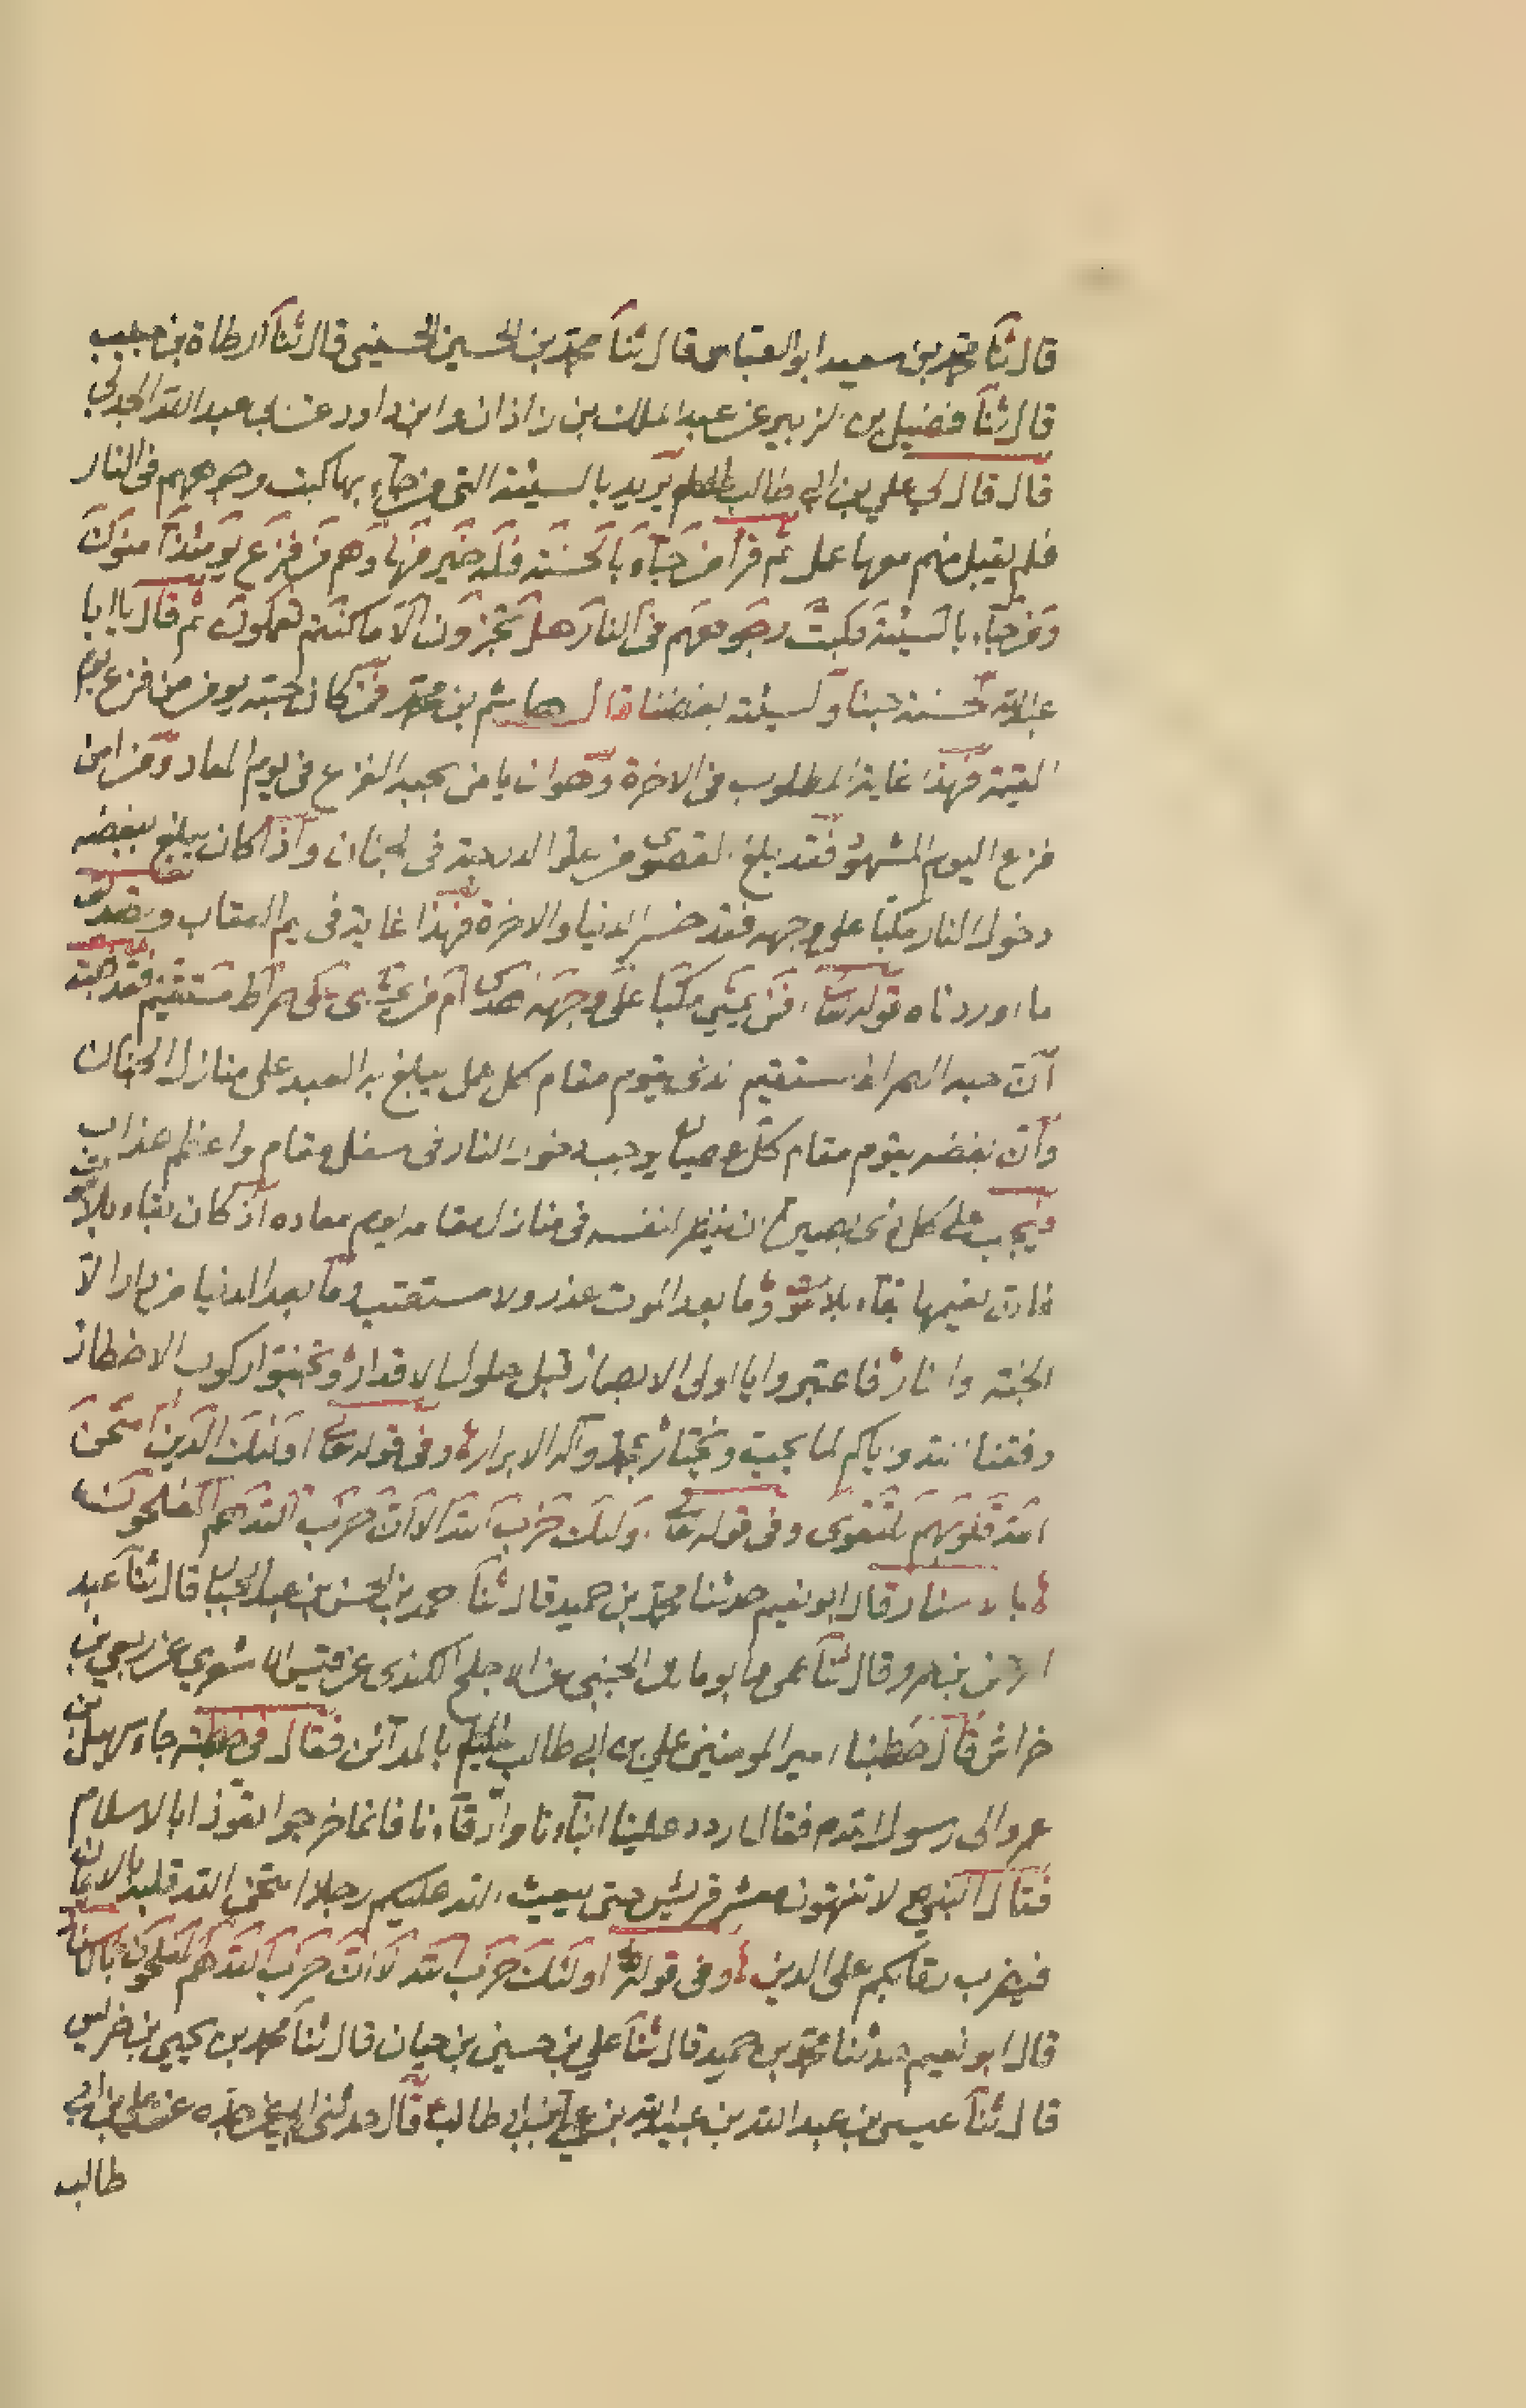 قال ثنا محمد بن سعيد ابو العباس قال ثنا محمد بن الحسين الحسيني قال ثنا ارطاة بن حبيب
قال ثنا فضيل بن الزبير عن عبد الملك بن زاذان وابن داود عن ابي عبد الله الجدلي
قال قال لي علي بن ابي طالب يريد بالسيئة التي من جاء بها كبت وجوههم في النار
فلم يقبل منهم معها عمل ثم قرأ من جاء بالحسنة فله خير منها وهم من فزع يومئذ آمنون
ومن جاء بالسيئة فكبت وجوههم في النار هل تجزون الا ما كنتم تعملون ثم قال يا ابا
عبد الله الحسنة حبنا والسيئة بغضنا قال هاشم بن محمد فمن كان حبه يومن من فزع يوم
القيمة فهذا غاية المطلوب في الاخرة وهو ان يامن بحبه الفزع في يوم المعاد ومن امن
فزع اليوم المشهود فقد بلغ القصوى من علو الدرجة في الجنان واذا كان يبلغ ببغضه
دخول النار مكبا على وجهه فقد خسر الدنيا والاخرة فهذا غاية في يم العقاب ويصدق
ما اوردناه قوله تعا افمن يمشي مكبا على وجهه اهدى ام من يمشى سوى على صراط مستقيم فقد
ان حبه الصراط المستقيم الذى يقوم مقام كل عمل يبلغ به العبد على منازل الجنان
وان بغضه يقوم مقام كل عصيان يوجب دخول النار في اسفل مقام واعظم عذاب
ويجب على كل ذى بصيرة ان ينظر لنفسه في منازل مقامه ليوم معاده اذ كان بقاء بلا
فارق نعيمها بقاء بلا وما بعد الموت عذر ولا مستعتب وما بعد الدنيا من دار الا
الجنة والنار فاعتبروا يا اولى الابصار قبل حلول الاقدار وتجنبوا ركوب الاخطار
وفقنا الله واياكم لما يحب ويختار بمحمد وآله الابرار وفى قوله تعا اولئك الذين امتحن
الله قلوبهم للتقوى وفى قوله تعا اولئك حزب الله الا ان حزب الله هم المفلحون
بالاسناد قال ابو نعيم حدثنا محمد بن حميد قال ثنا محمد بن الحسن بن عبد الجبار قال ثنا عبد
الرحمن بن عمرو قال ثنا عمى ابو مالك الجنبي عن الاجلح الكندى عن قيس الاشعري عن ربعي بن
خراش قال خطبنا امير المومنين علي بن ابي طالب بالمدائن فقال في خطبته جاء سهيل بن
عمرو الى رسول الله فقال اردد علينا ابناءنا وارقاءنا فانما خرجوا تعوذا بالاسلام
فقال النبي لا تنتهون معشر قريش حتى يبعث الله عليكم رجلا امتحن الله قلبه بالايمان
فيضرب رقابكم على الدين وفى قوله اولئك حزب الله الا ان حزب الله هم المفلحون
قال ابو نعيم حدثنا محمد بن حميد قال ثنا علي بن حسين بن حيان قال ثنا محمد بن يحيى بن ضريس
قال ثنا عيسى بن عبد الله بن عبيد الله بن علي بن ابي طالب قال حدثني ابي عن جده عن علي بن ابي
طالب